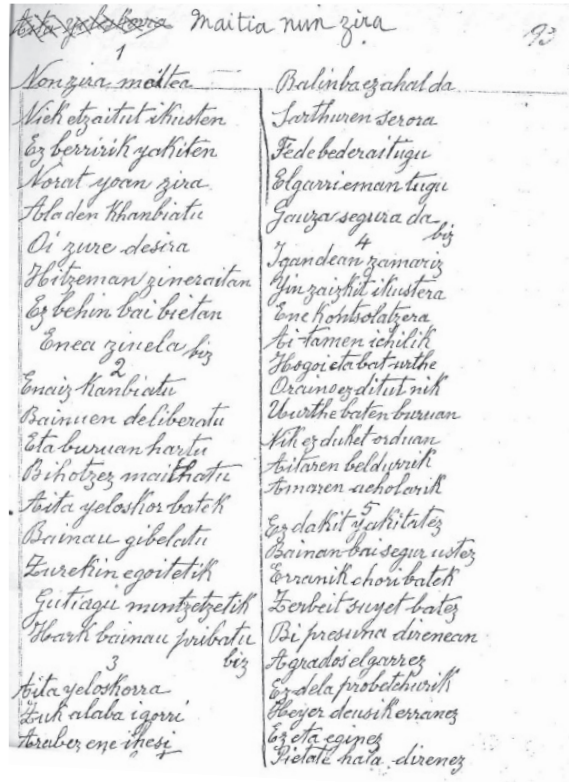 Aita yeloskorra Maitia nun zira
93
1
Non zira maitea
Niek etzaitut ikusten
Ez berririk yakiten
Norat yoan zira
Ala den khanbiatu
Oi zure desira
Hitzeman zineraitan
Ez behin bai bietan
Enea zinela biz
2
Enaiz kanbiatu
Bainuen deliberatu
Eta buruan hartu
Bihotzez maithatu
Aita yeloskor batek
Bainau gibelatu
Zurekin egoitetik
Gutiagu mintzetzetik
Hark bainau pribatu
biz
3
Aita yeloskorra
Zuk alaba igorri
Arabez ene ihesi
Balinba ez ahal da
Sarthuren serora
Fede bedera itugu
Elgarri eman tugu
Gauza segura da
biz
4
Igandean zamariz
Yin zaizkit ikustera
Ene kontsolatzera
Aitamen ichilik
Hogoi eta bat urthe
Oraino ez ditut nik
Uurthe baten buruan
Nik ez duket orduan
Aitaren beldurrik
Amaren acholarik
5
Ez dakit yakitatez
Bainan bai segur ustez
Erranik chori batek
Zerbeit suyet batez
Bi presuna direnean
Agrados elgarrez
Ez dela probetchurik
Heyer deusik erranez
Ez eta eginez
Pietate hala direnez